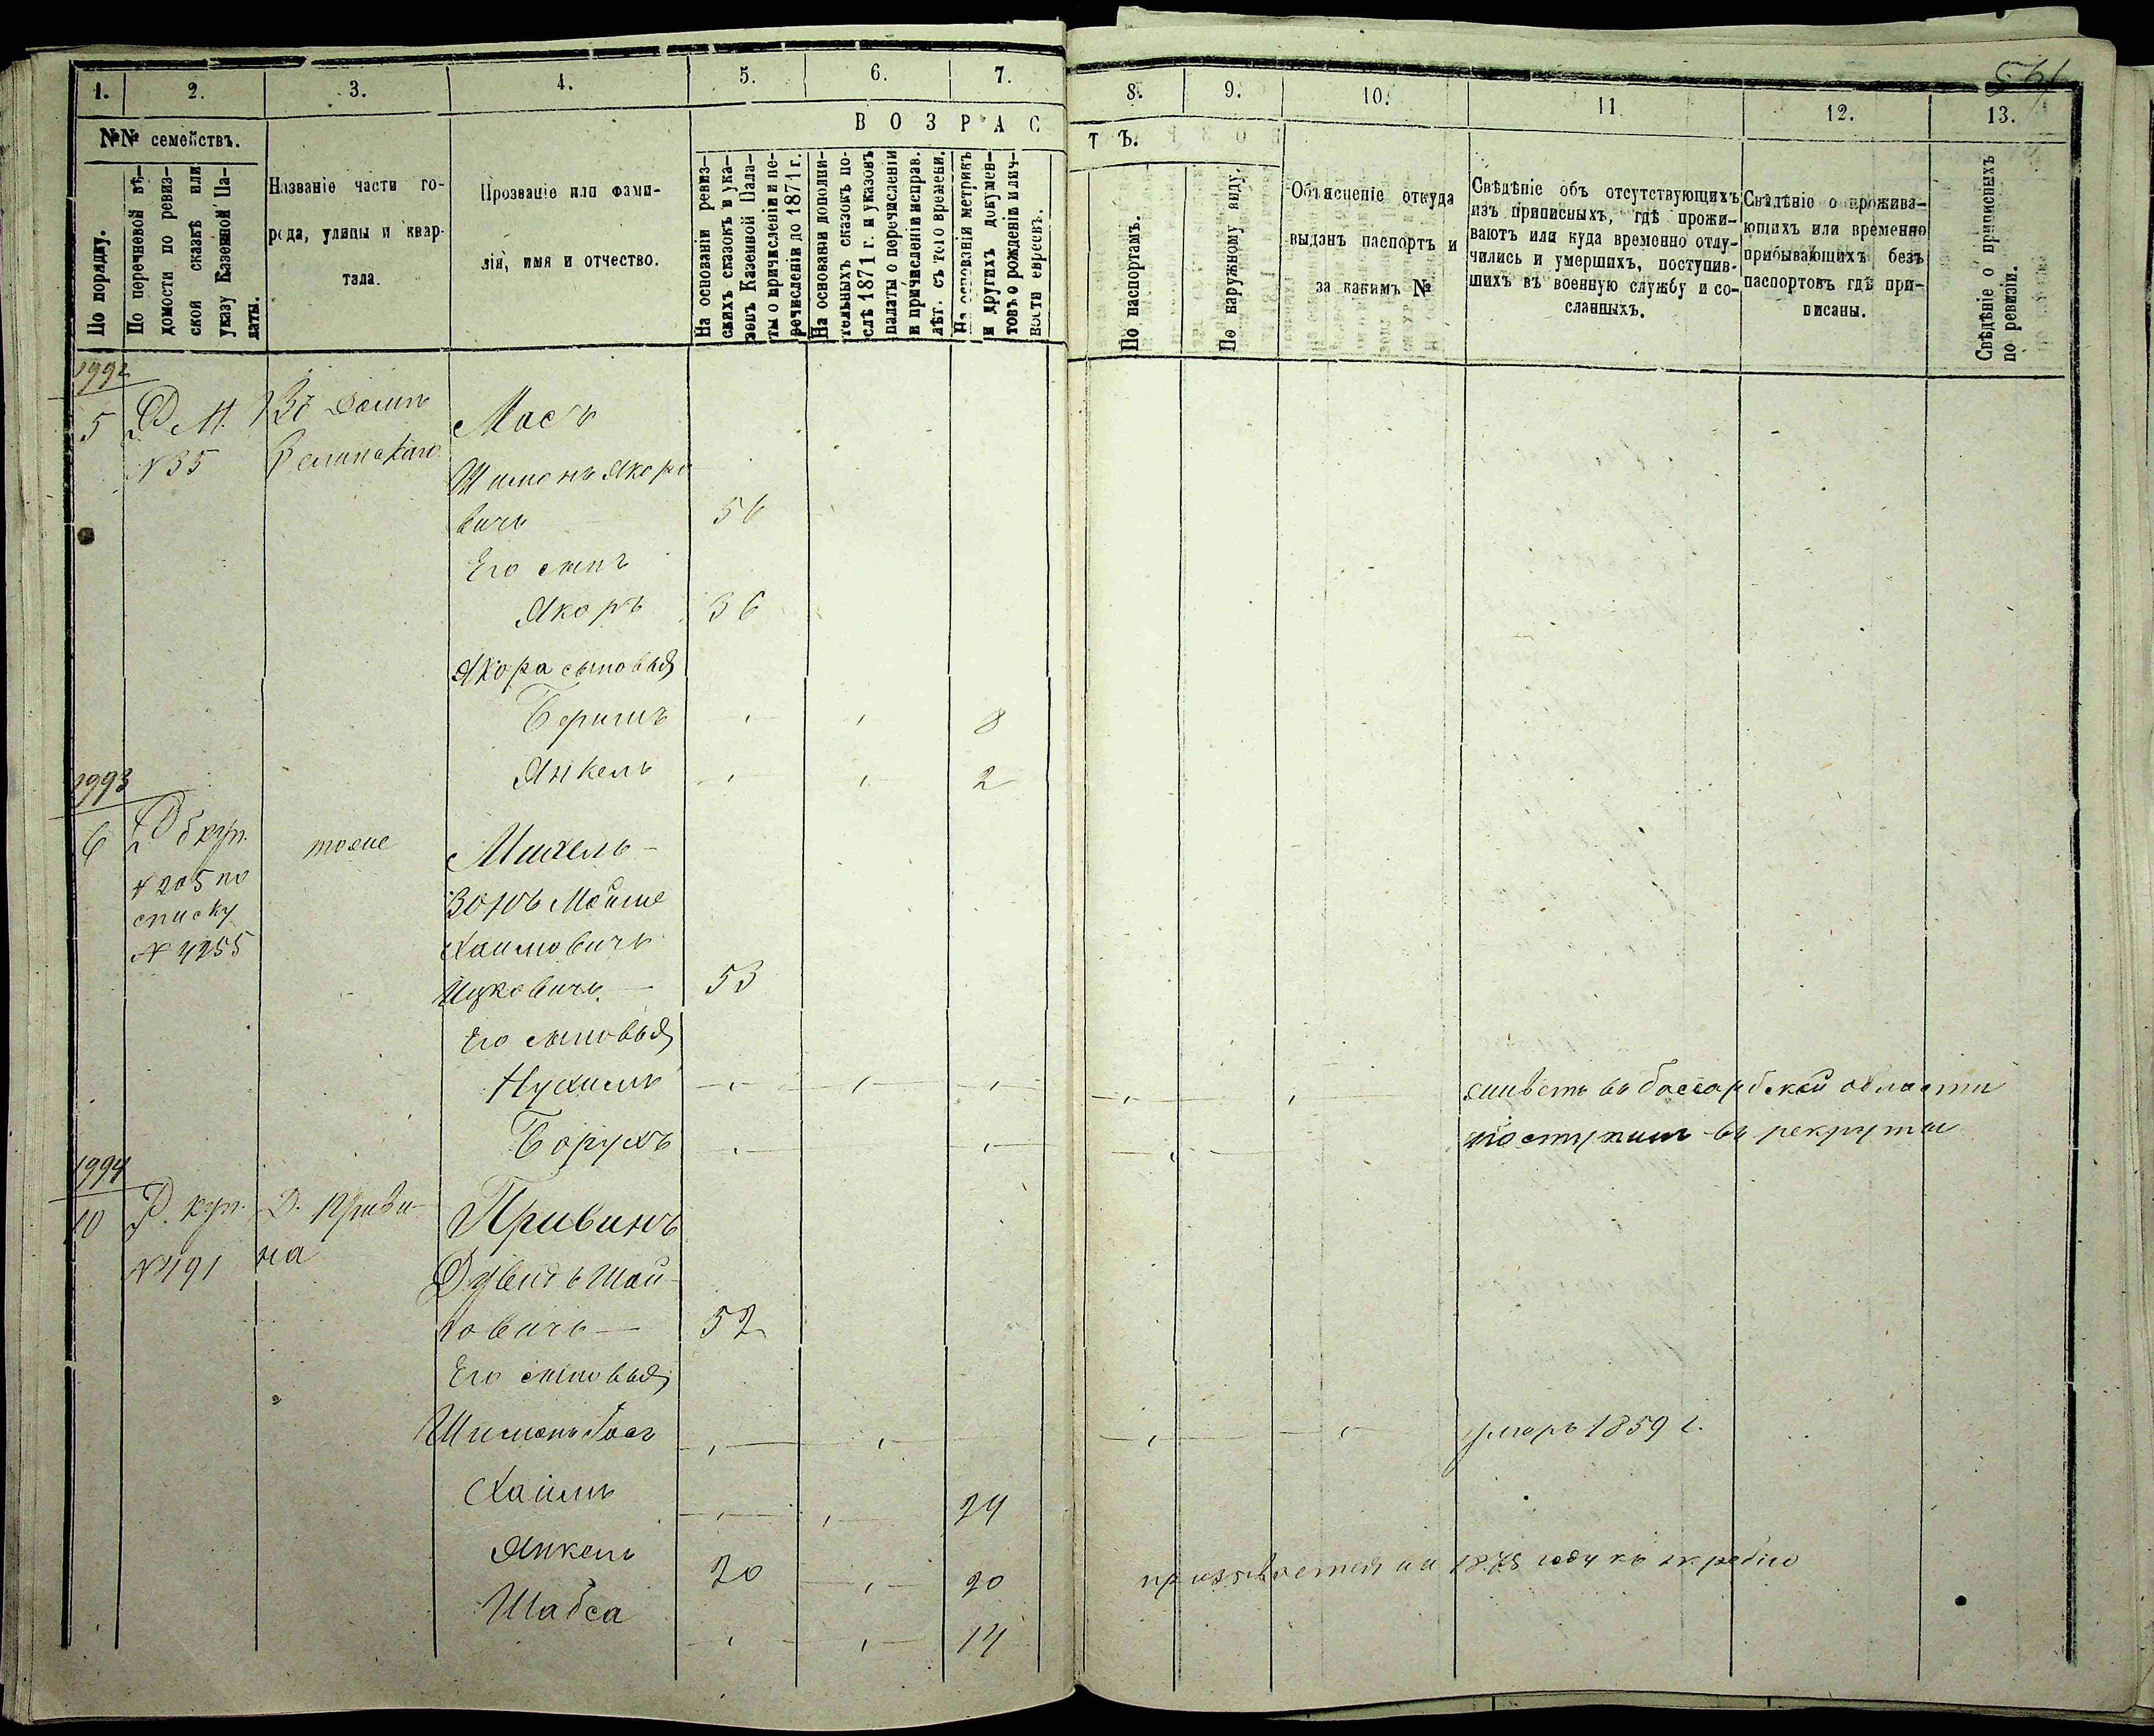 1. 2. 3. 4. 5. 6. 7. 8. 9. 10. 11 12. 13.
№№ семействъ.
По порядку.
По перечневой вѣ-
домости по ревиз-
ской сказкѣ или
указу Казенной Па-
латы.
Названіе части го-
рода, улицы и квар-
тала.
Прозваніе или фами-
лія, имя и отчество.
ВОЗРАСТЪ.
На основаніи ревиз-
скихъ сказокъ и ука-
зовъ Казенной Пала-
ты о причисленіи и пе-
речисленіи до 1871 г.
На основаніи дополни-
тельныхъ сказокъ по-
слѣ 1871 г. и указовъ
палаты о перечисленіи
и причисленіи неправ.
лѣт. съ того времени.
На основаніи метрикъ
и другихъ докумен-
товъ о рожденіи и лич-
ности евреевъ.
По паспортамъ.
По наружному виду.
Объясненіе откуда
выданъ паспортъ и
за какимъ №
Свѣдѣніе объ отсутствующихъ
изъ приписныхъ, гдѣ прожи-
ваютъ или куда временно отлу-
чились и умершихъ, поступив-
шихъ въ военную службу и со-
сланныхъ.
Свѣдѣніе о прожива-
ющихъ или временно
прибывающихъ безъ
паспортовъ гдѣ при-
писаны.
Свѣдѣніе о приписныхъ
по ревизіи.
1992
5 Р М. Въ домѣ Мась
№ 35
Шимонъ Якоро
вичь 56
Его сынъ
Якоръ 36
Якора сыновья
Беришъ 8
Янкель 2
1993
6 куп. тоже Михель-
№ 205 по
списку Зонъ Мойше
№ 4255 Хаимовичь
Ицковичь 53
Его сыновья
Нухимъ живетъ въ бессарабской области
Борухъ поступилъ въ рекруты
1994
10 Р. куп. Д. Приви- Привинъ
№ 491 на
Дувидъ Шай-
ковичь 52
Его сыновья
Шимонъ умеръ 1859 г.
Хаимъ 24
Янкель 20 20 призывается на 1875 году къ жребію
Шабса 14